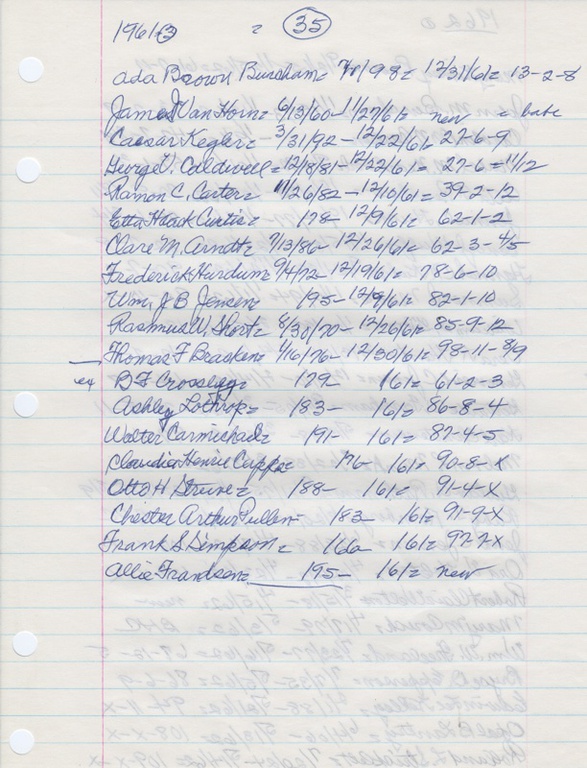 1961 = 35
Ada Brown Burcham = 98 = 12/31/61 = 13-2-8
James J Van Horn = 6/13/60 - 11/27/61 = new = babe
Caesar Kegler = 3/31/92 - 12/22/61 = 27-6-9
George V. Caldwell = 12/18/81 - 12/22/61 = 27-6=11/12
Ramon C. Carter = 11/26/82 - 12/10/61 = 39-2-12
Etta Hauk Curtis = 178 - 12/9/61 = 62-1-2
Clare M. Arndt = 7/13/86 - 12/26/61 = 62-3-4/5
Frederick Hurdum = 9/4/72 - 12/19/61 = 78-6-10
Wm. J B Jensen = 195 - 12/9/61 = 82-1-10
Rasmus W. Short = 8/30/70 - 12/26/61 = 85-9-12
Thomas F Bracken = 4/16/76 - 12/30/61 = 98-11-8/9
ex B F Crossley = 179 161 = 61-2-3
Ashley Lothrop = 183 - 161 = 86-8-4
Walter Carmichael = 191 - 161 = 87-4-5
Claudia Henrie Cupp = 176 - 161 = 90-8-X
Otto H Struve = 188 - 161 = 91-4-X
Chester Arthur Pullen - 183 161 = 91-9-X
Frank S Simpson = 166 161 = 92-2-X
Allie Frandsen = 195 - 161 = new